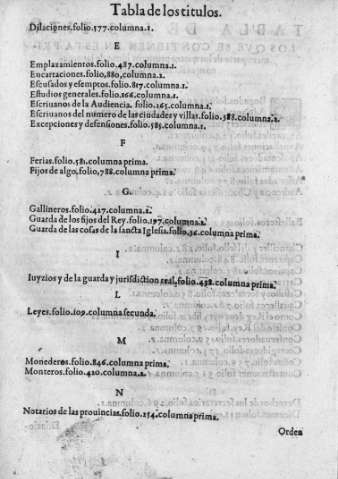 Tabla de los titulos.
Dilaciones.folio.577.columna.1.
E
Emplazamientos.folio.487.columna.1.
Encartaciones.folio,880,columna.2.
Escusados y esemptos.folio.817.columna.1.
Estudios generales.folio.166.columna.1.
Escriuanos de la Audiencia. folio.265.columna.2.
Escriuanos del numero de las ciudades y villas.folio.388.columna.2.
Excepciones y defensiones.folio.585.columna.1.
F
Ferias.folio.581.columna prima.
Fijos de algo,folio,788.columna prima.
G
Gallineros.folio.417.columna.2.
Guarda de los fijos del Rey.folio.197.columna.2.
Guarda de las cosas de la sancta Iglesia.folio.36.columna prima.
I
Iuyzios y de la guarda y jurisdiction real,folio.458.columna prima.
L
Leyes.folio.109.columna secunda.
M
Monederos.folio.846.columna prima.
Monteros.folio.420.columna.2.
N
Notarios de las prouincias.folio.254.columna prima.
Orden